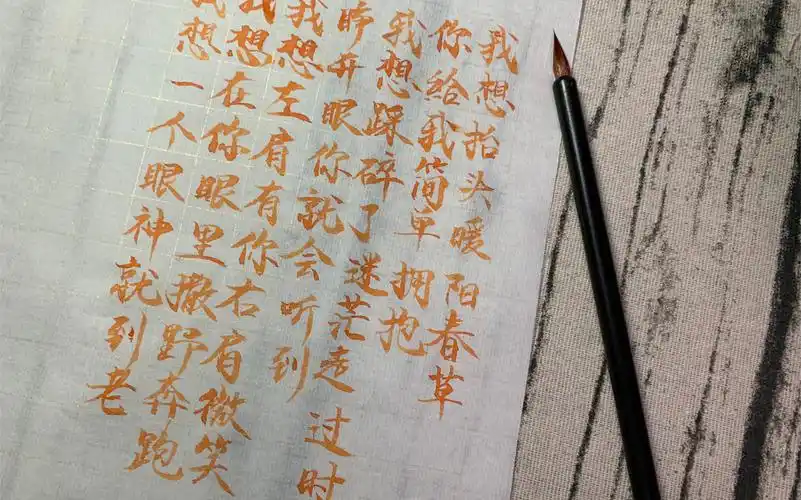 我想抬头暖阳春草
你给我简单拥抱
我想踩碎了迷茫走过时
睁开眼你就会听到
我想左肩有你右肩微笑
我想在你眼里撒野奔跑
我想一个眼神就到老